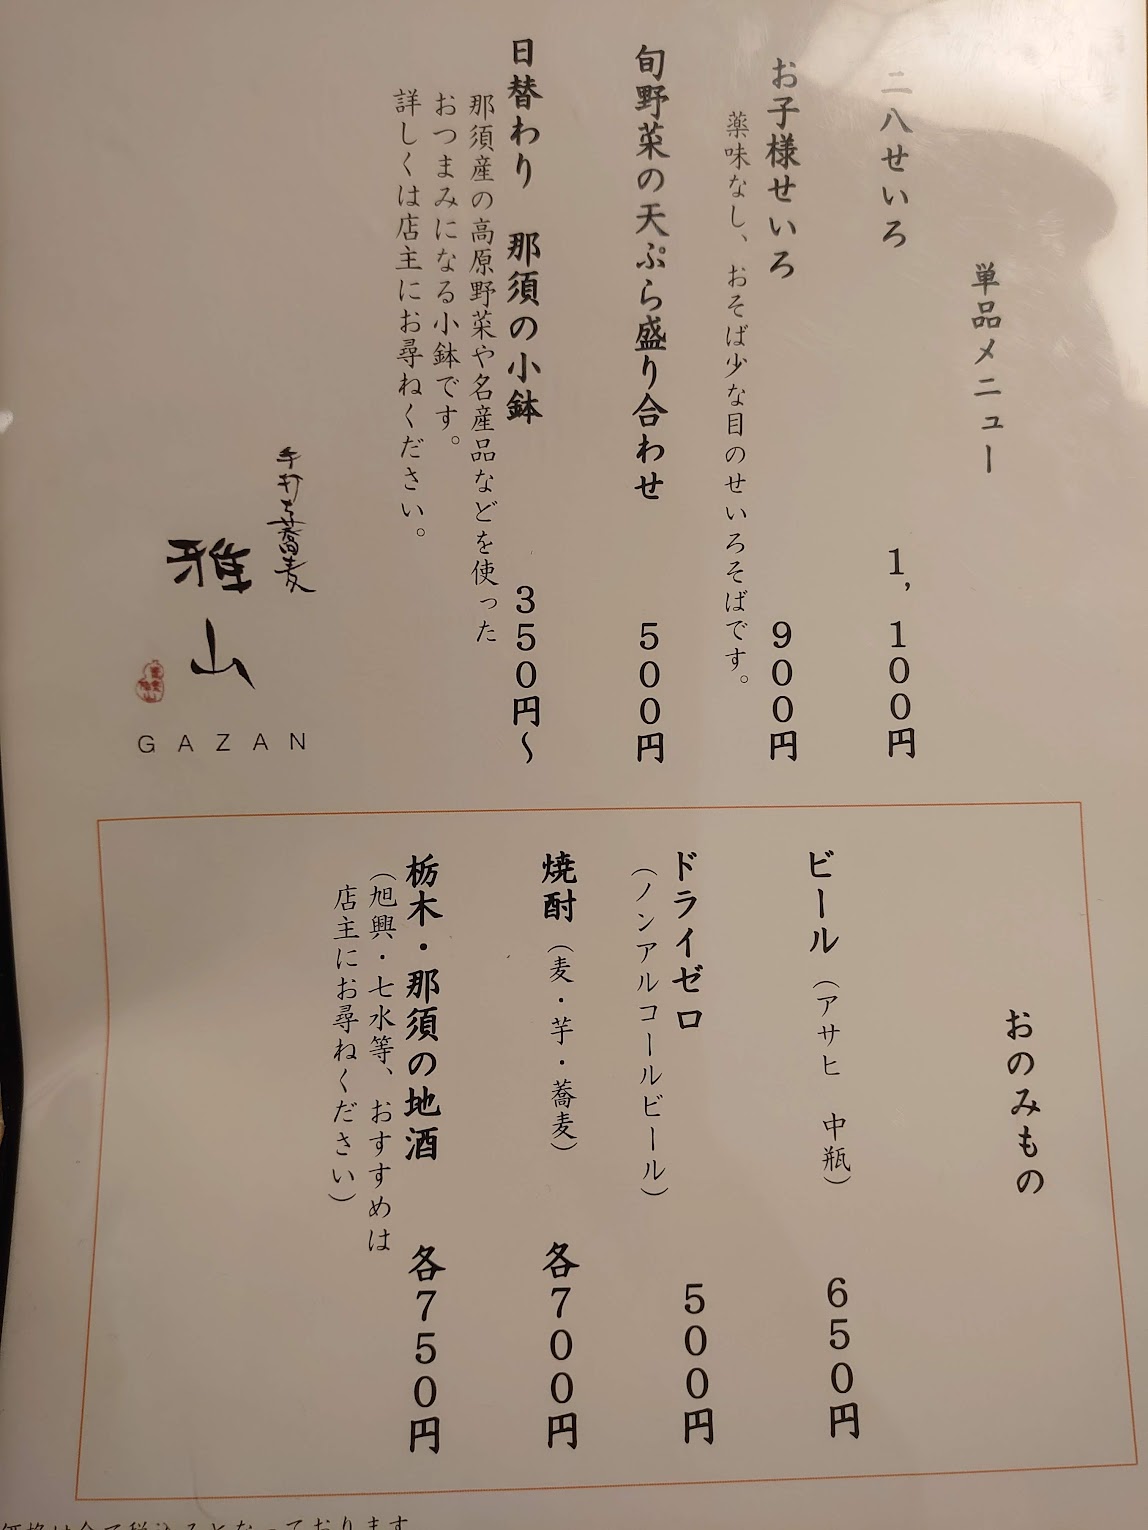 単品メニュー
二八せいろ　１，１００円
お子様せいろ　９００円
薬味なし、おそば少な目のせいろそばです。
旬野菜の天ぷら盛り合わせ　５００円
日替わり　那須の小鉢　３５０円～
那須産の高原野菜や名産品などを使った
おつまみになる小鉢です。
詳しくは店主にお尋ねください。
手打ち蕎麦
雅山
GAZAN
おのみもの
ビール（アサヒ　中瓶）　６５０円
ドライゼロ　５００円
（ノンアルコールビール）
焼酎（麦・芋・蕎麦）　各７００円
栃木・那須の地酒　各７５０円
（旭興・七水等、おすすめは
店主にお尋ねください）
価格は全て税込みとなっております